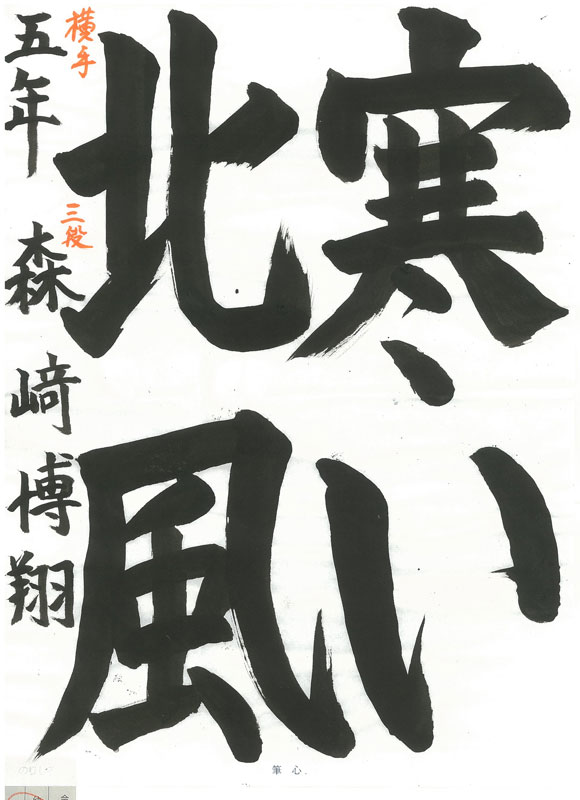 寒い
北風
横手
三段
五年 森﨑博翔
筆心